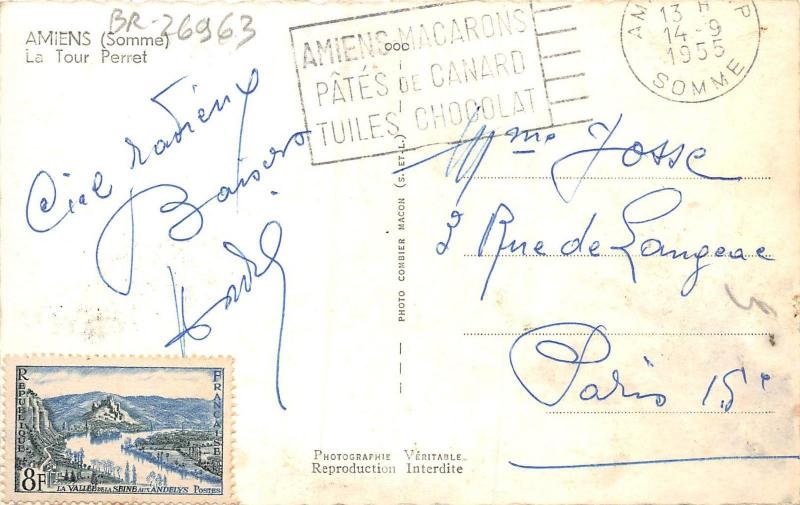 BR-26963
AMIENS (Somme)
La Tour Perret
AMIENS MACARONS
PÂTÉS DE CANARD
TUILES CHOCOLAT
13 H
14-9
1955
SOMME
Ciel radieux
Baisers
Mme Josse
2 Rue de Langeac
Paris 15e
PHOTO COMBIER MACON (S.-ET-L.)
RÉPUBLIQUE FRANÇAISE
8F
LA VALLÉE DE LA SEINE AUX ANDELYS POSTES
PHOTOGRAPHIE VÉRITABLE
Reproduction Interdite